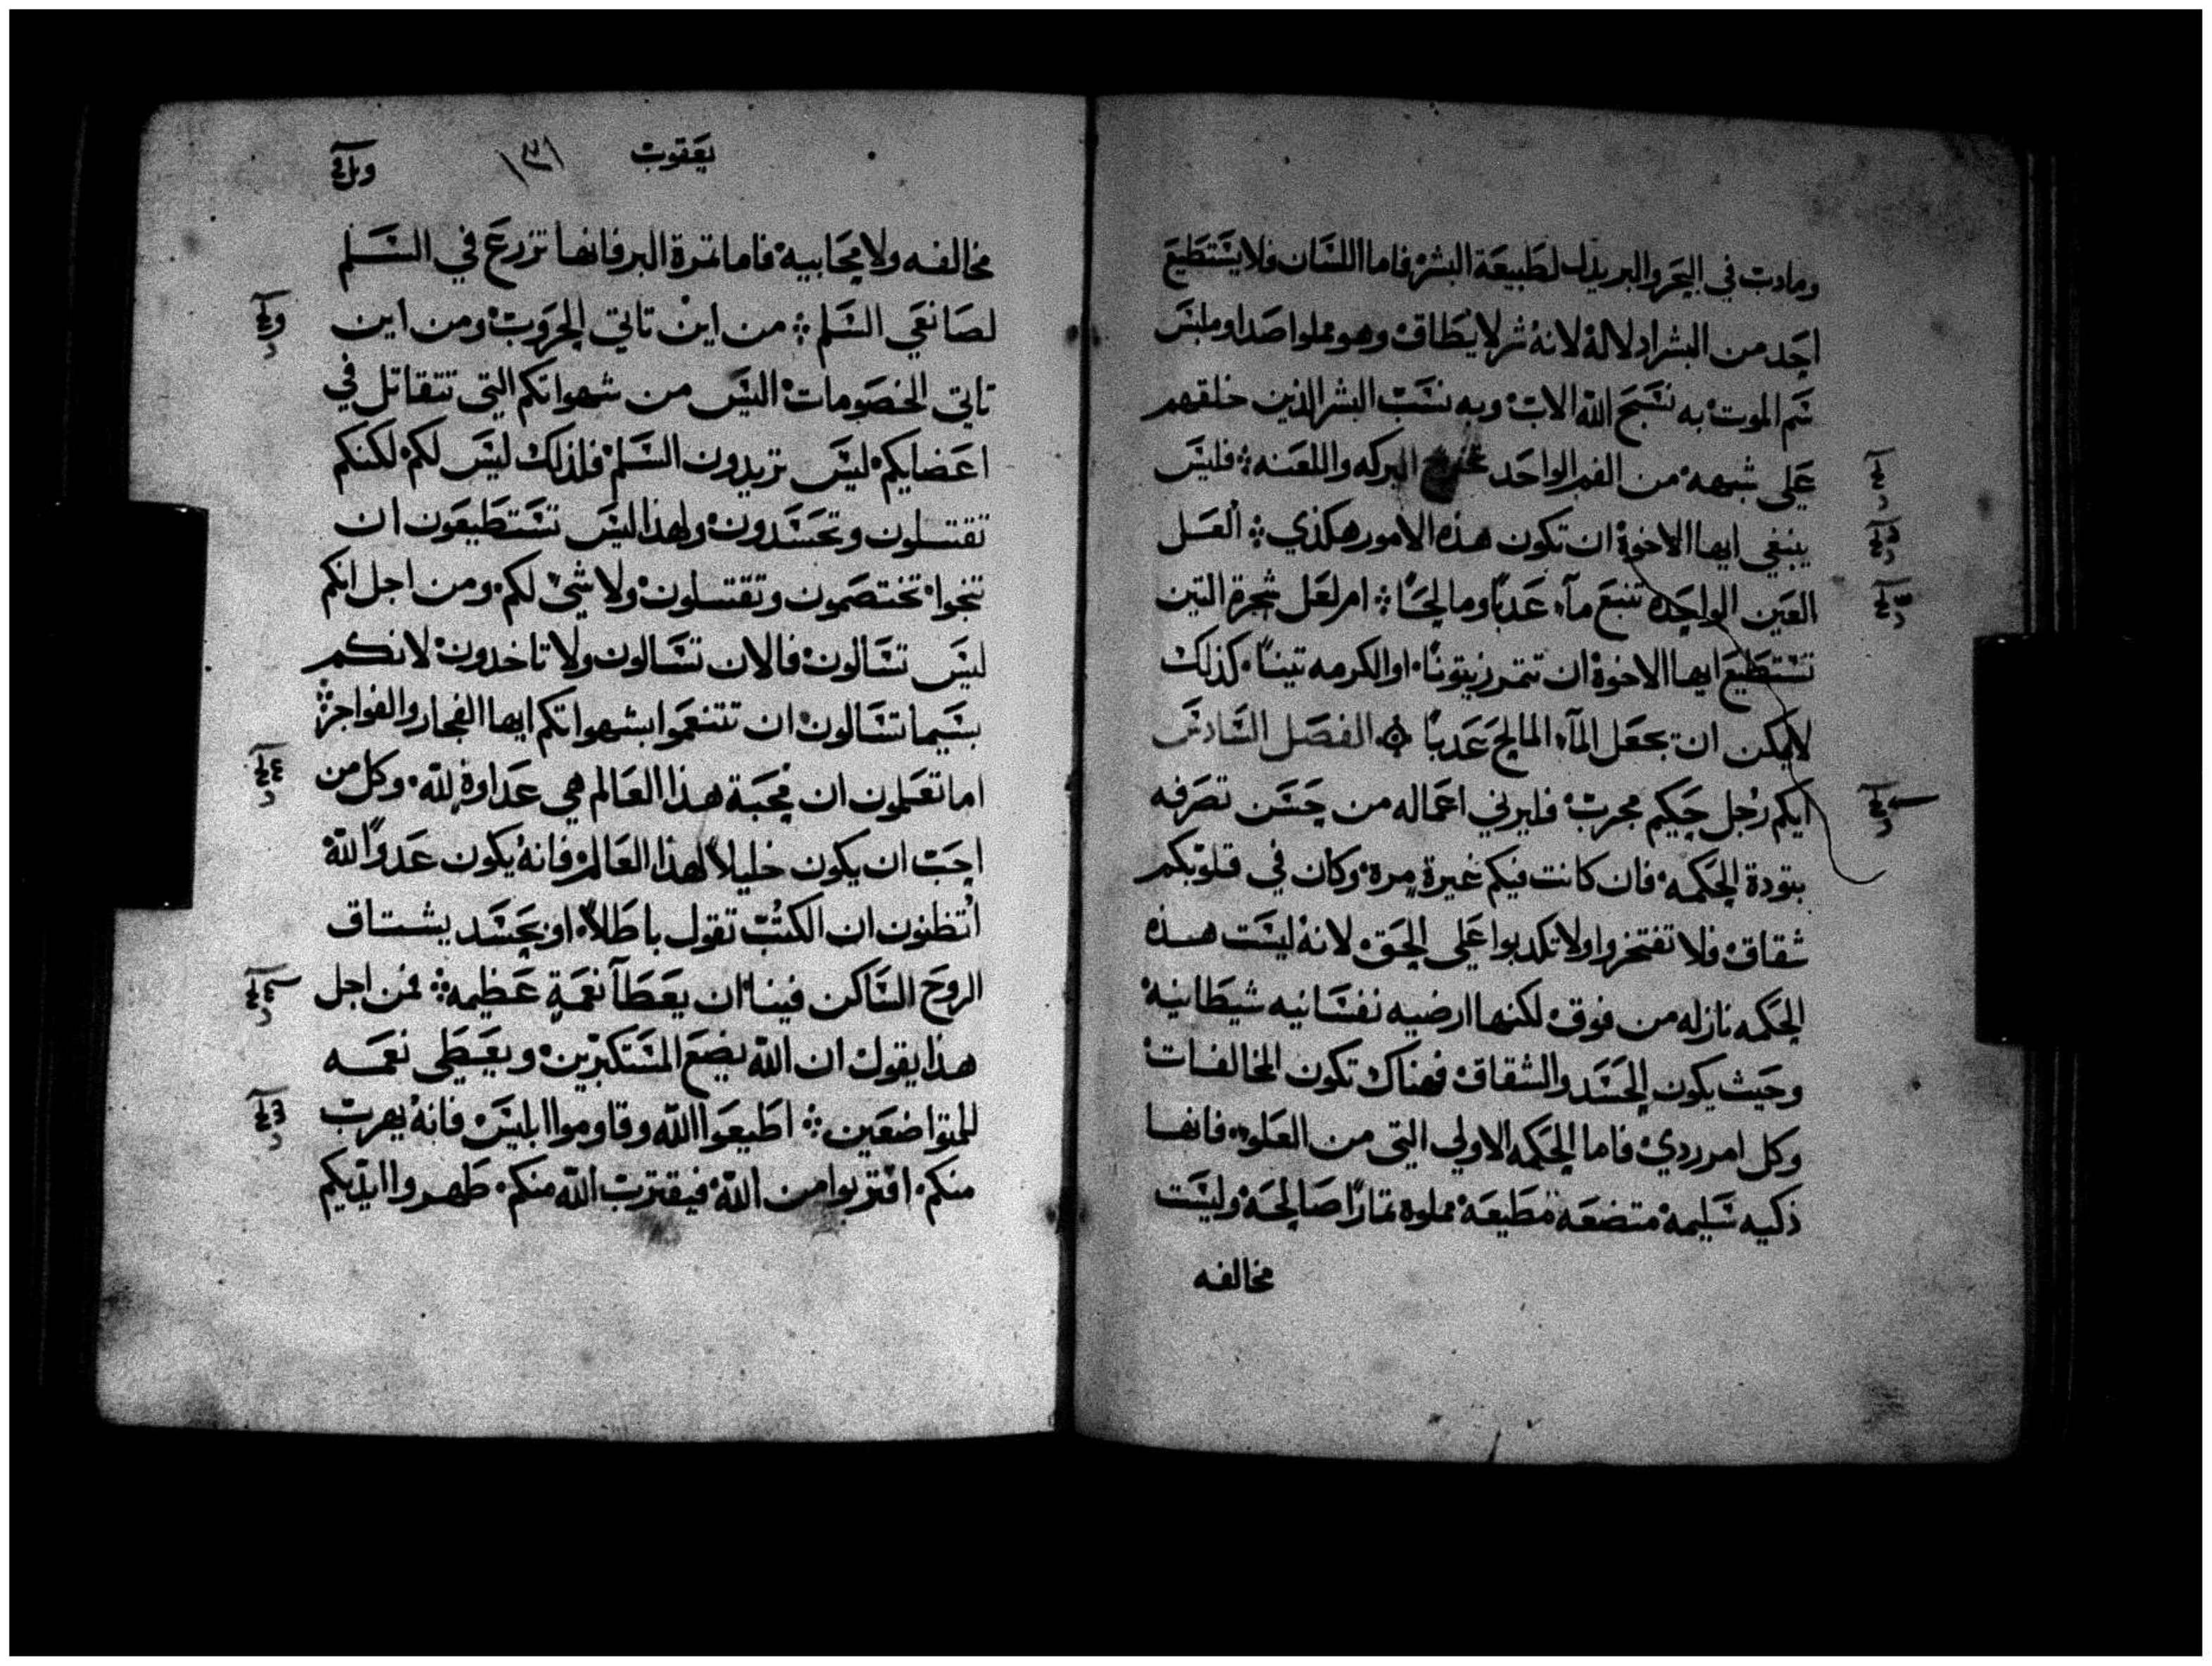 ومادب في البحر والبر يدل لطبيعة البشر فاما اللسان فلا يستطيع
احد من البشر اذلاله لانه شر لا يطاق وهو مملوا صدا وملبس
سم الموت به نسبح الله الاب وبه نسب البشر الذين خلقهم
على شبهه من الفم الواحد تخرج البركه واللعنه فليس
ينبغي ايها الاخوة ان تكون هذه الامور هكذي العسل
العين الواحده تنبع مآء عدبا ومالحًا ام لعل شجرة التين
تستطيع ايها الاخوة ان تتمر زيتونًا او الكرمه تينًا كذلك
لايمكن ان يجعل المآء المالح عدبًا الفصل السادس
ايكم رجل حكيم مجرب فليرني اعماله من حسن تصرفه
بتودة الحكمه فان كانت فيكم غيرة مره وكان في قلوبكم
شقاق فلا تفتخروا ولا تكدبوا على الحق لانه ليست هذه
الحكمه نازله من فوق لكنها ارضيه نفسانيه شيطانيه
وحيث يكون الحسد والشقاق فهناك تكون المخالفات
وكل امر ردي فاما الحكمه الاولي التي من العلو فانها
ذكيه سليمه متضعه مطيعه مملوه تمارًا صالحه وليست
مخالفه
يعقوب
١٣١
مخالفه ولا محابيه فاما تمرة البر فانها تزرع في السلم
لصانعي السلم من اين تاتي الحروب ومن اين
تاتي الخصومات اليس من شهواتكم التي تتقاتل في
اعضايكم ليس تريدون السلم فلذلك ليس لكم لكنكم
تقتسلون وتحسدون ولهذا ليس تستطيعون ان
تنجوا تختصمون وتقتسلون ولا شي لكم ومن اجل انكم
ليس تسالون فالان تسالون ولا تاخدون لانكم
بيسيما تسالون ان تتنعموا بشهواتكم ايها الفجار والفواجر
اما تعلمون ان محبة هذا العالم هي عداوة لله وكل من
احب ان يكون خليلاً لهذا العالم فانه يكون عدوًا لله
اتظنون ان الكتب تقول باطلاً او بحسد يشتاق
الروح الساكن فينا ان يعطآ نعمة عظيمه فمن اجل
هذا يقول ان الله يضع المستكبرين ويعطي نعمه
للمتواضعين اطيعوا الله وقاوموا ابليس فانه يهرب
منكم اقتربوا من الله فيقترب الله منكم طهروا ايديكم